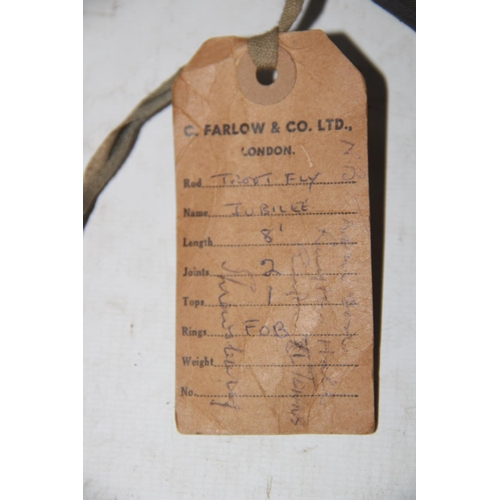 C. FARLOW & CO. LTD.,
LONDON.
Rod TROUT FLY
Name JUBILEE
Length 8'
Joints 2
Tops 1
Rings FOB
Weight
No.
Shrewsbury